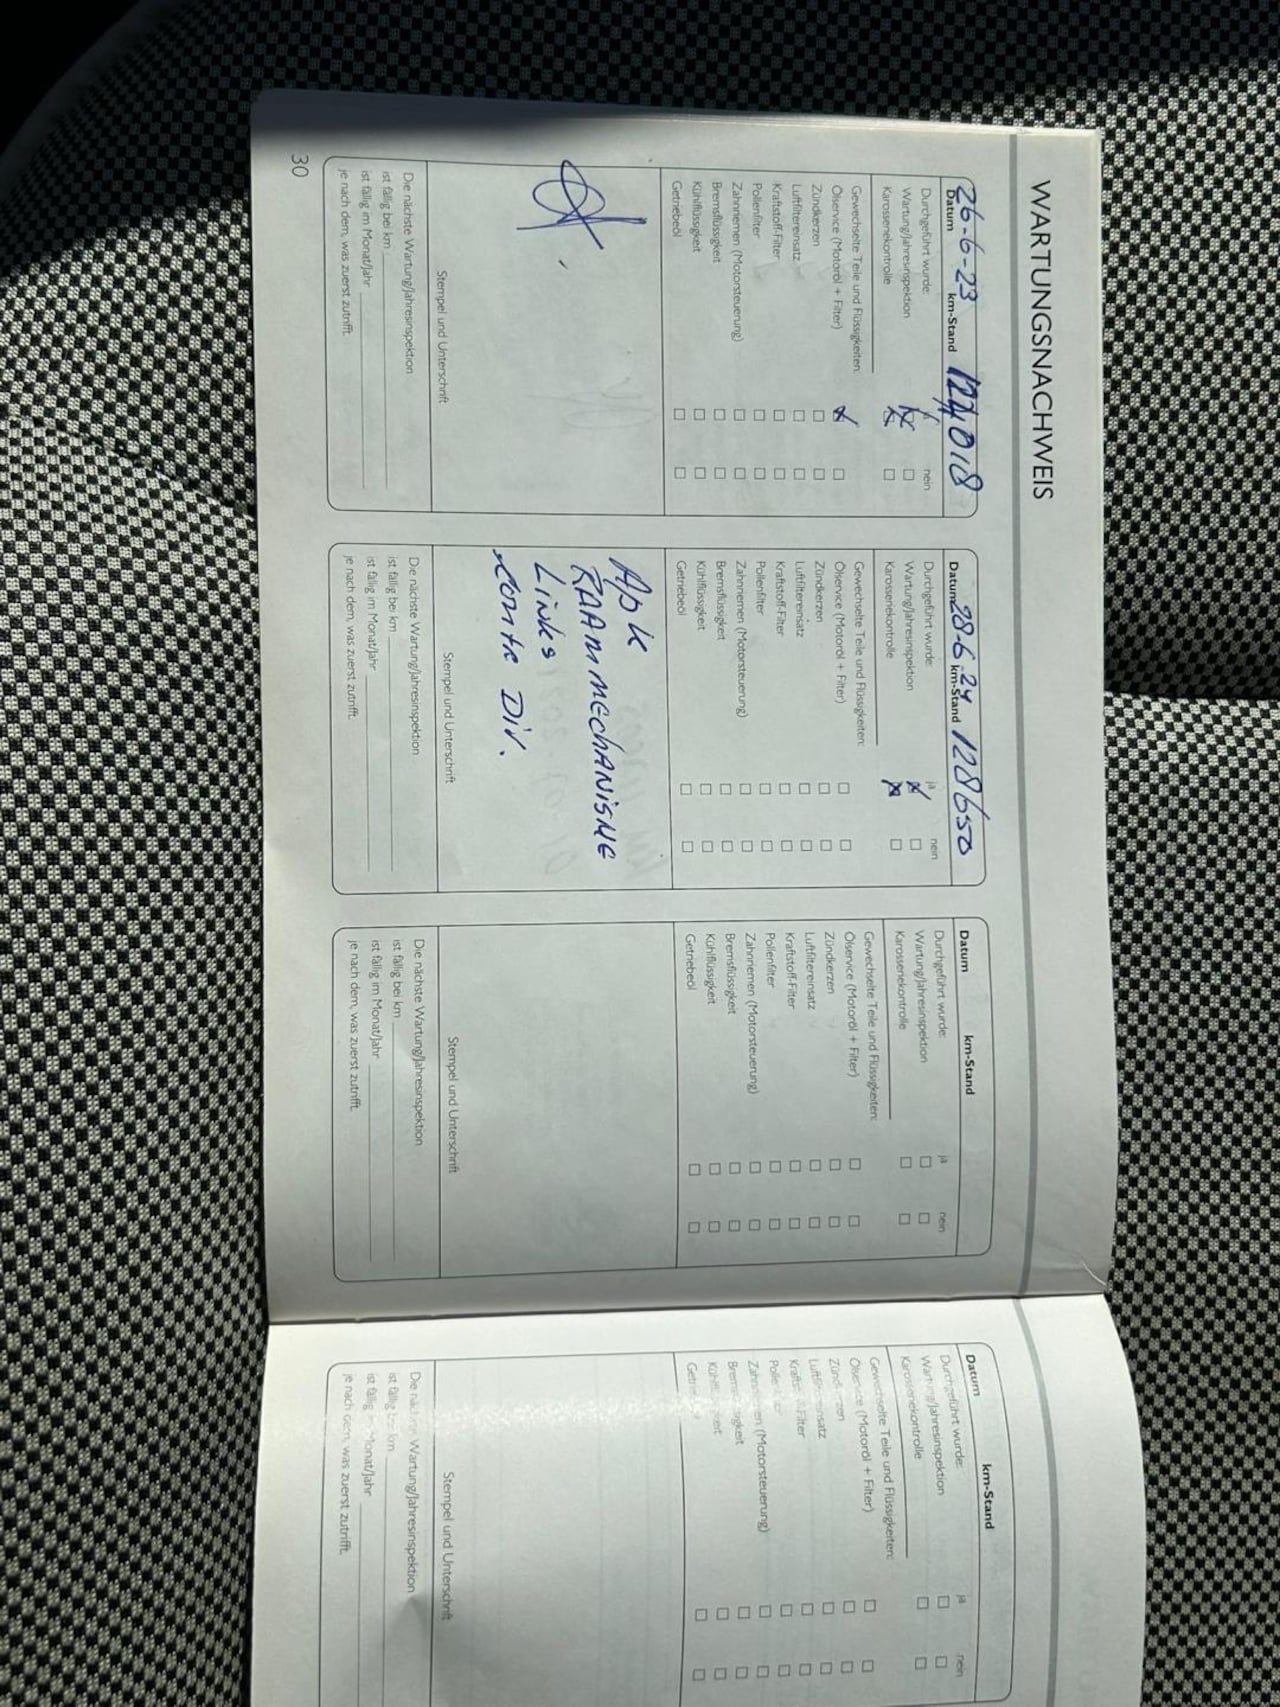 WARTUNGSNACHWEIS
Datum 26-6-23 km-Stand 124018
Durchgeführt wurde: ja nein
Wartung/Jahresinspektion
Karossenekontrolle
Gewechselte Teile und Flüssigkeiten:
Ölservice (Motoröl + Filter)
Zündkerzen
Luftfiltereinsatz
Kraftstoff-Filter
Pollenfilter
Zahnriemen (Motorsteuerung)
Bremsflüssigkeit
Kühlflüssigkeit
Getriebeöl
Stempel und Unterschrift
Die nächste Wartung/Jahresinspektion
ist fällig bei km
ist fällig im Monat/Jahr
je nach dem, was zuerst zutrifft.
30
Datum 28-6-24 km-Stand 128650
Durchgeführt wurde: ja nein
Wartung/Jahresinspektion
Karossenekontrolle
Gewechselte Teile und Flüssigkeiten:
Ölservice (Motoröl + Filter)
Zündkerzen
Luftfiltereinsatz
Kraftstoff-Filter
Pollenfilter
Zahnriemen (Motorsteuerung)
Bremsflüssigkeit
Kühlflüssigkeit
Getriebeöl
Apk
RAAMMECHANISME
Links
Div.
Stempel und Unterschrift
Die nächste Wartung/Jahresinspektion
ist fällig bei km
ist fällig im Monat/Jahr
je nach dem, was zuerst zutrifft.
Datum km-Stand
Durchgeführt wurde: ja nein
Wartung/Jahresinspektion
Karossenekontrolle
Gewechselte Teile und Flüssigkeiten:
Ölservice (Motoröl + Filter)
Zündkerzen
Luftfiltereinsatz
Kraftstoff-Filter
Pollenfilter
Zahnriemen (Motorsteuerung)
Bremsflüssigkeit
Kühlflüssigkeit
Getriebeöl
Stempel und Unterschrift
Die nächste Wartung/Jahresinspektion
ist fällig bei km
ist fällig im Monat/Jahr
je nach dem, was zuerst zutrifft.
Datum km-Stand
Durchgeführt wurde: ja nein
Wartung/Jahresinspektion
Karossenekontrolle
Gewechselte Teile und Flüssigkeiten:
Ölservice (Motoröl + Filter)
Zündkerzen
Luftfiltereinsatz
Kraftstoff-Filter
Pollenfilter
Zahnriemen (Motorsteuerung)
Bremsflüssigkeit
Kühlflüssigkeit
Getriebeöl
Stempel und Unterschrift
Die nächste Wartung/Jahresinspektion
ist fällig bei km
ist fällig im Monat/Jahr
je nach dem, was zuerst zutrifft.